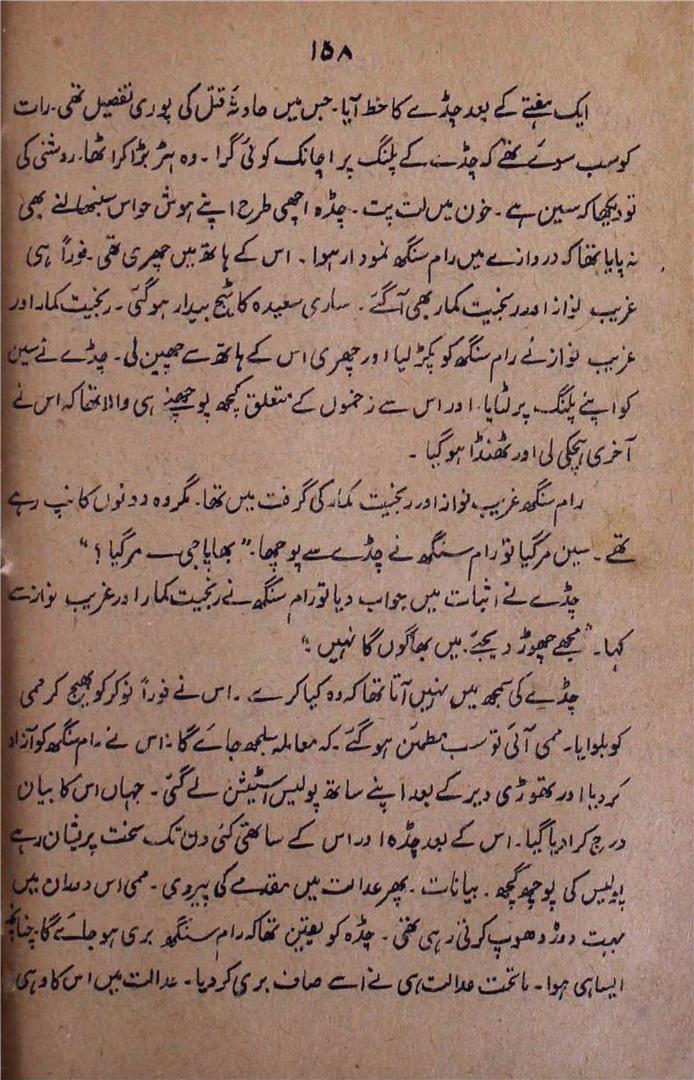 ۱۵۸
ایک ہفتے کے بعد چڈے کا خط آیا۔ جس میں حادثۂ قتل کی پوری تفصیل تھی۔ رات
کو سب سوئے تھے کہ چڈے کے پلنگ پر اچانک کوئی گرا۔ وہ ہڑبڑا کر اٹھا۔ روشنی کی
تو دیکھا کہ سین ہے۔ خون میں لت پت۔ چڈہ اچھی طرح اپنے ہوش حواس سنبھالنے بھی
نہ پایا تھا کہ دروازے میں رام سنگھ نمودار ہوا۔ اس کے ہاتھ میں چھری تھی۔ فوراً ہی
غریب نواز اور رنجیت کمار بھی آ گئے۔ ساری سعیدہ کاٹیج بیدار ہو گئی۔ رنجیت کمار اور
غریب نواز نے رام سنگھ کو پکڑ لیا اور چھری اس کے ہاتھ سے چھین لی۔ چڈے نے سین
کو اپنے پلنگ پر لٹایا۔ اور اس سے زخموں کے متعلق کچھ پوچھنے ہی والا تھا کہ اس نے
آخری ہچکی لی اور ٹھنڈا ہو گیا۔
رام سنگھ غریب نواز اور رنجیت کمار کی گرفت میں تھا۔ مگر وہ دونوں کانپ رہے
تھے۔ سین مر گیا تو رام سنگھ نے چڈے سے پوچھا۔ ”بھاپا جی — مر گیا ؟“
چڈے نے اثبات میں جواب دیا تو رام سنگھ نے رنجیت کمار اور غریب نواز سے
کہا۔ ”مجھے چھوڑ دیجئے۔ میں بھاگوں گا نہیں۔“
چڈے کی سمجھ میں نہیں آتا تھا کہ وہ کیا کرے۔ اس نے فوراً نوکر کو بھیج کر ممی
کو بلوایا۔ ممی آئی تو سب مطمئن ہو گئے۔ کہ معاملہ سلجھ جائے گا۔ اس نے رام سنگھ کو آزاد
کر دیا اور تھوڑی دیر کے بعد اپنے ساتھ پولیس اسٹیشن لے گئی۔ جہاں اس کا بیان
درج کرا دیا گیا۔ اس کے بعد چڈہ اور اس کے ساتھی کئی دن تک سخت پریشان رہے
پولیس کی پوچھ گچھ۔ بیانات۔ پھر عدالت میں مقدمے کی پیروی۔ ممی اس دوران میں
بہت دوڑ دھوپ کرتی رہی تھی۔ چڈہ کو یقین تھا کہ رام سنگھ بری ہو جائے گا۔ چنانچہ
ایسا ہی ہوا۔ ماتحت عدالت ہی نے اسے صاف بری کر دیا۔ عدالت میں اس کا وہی